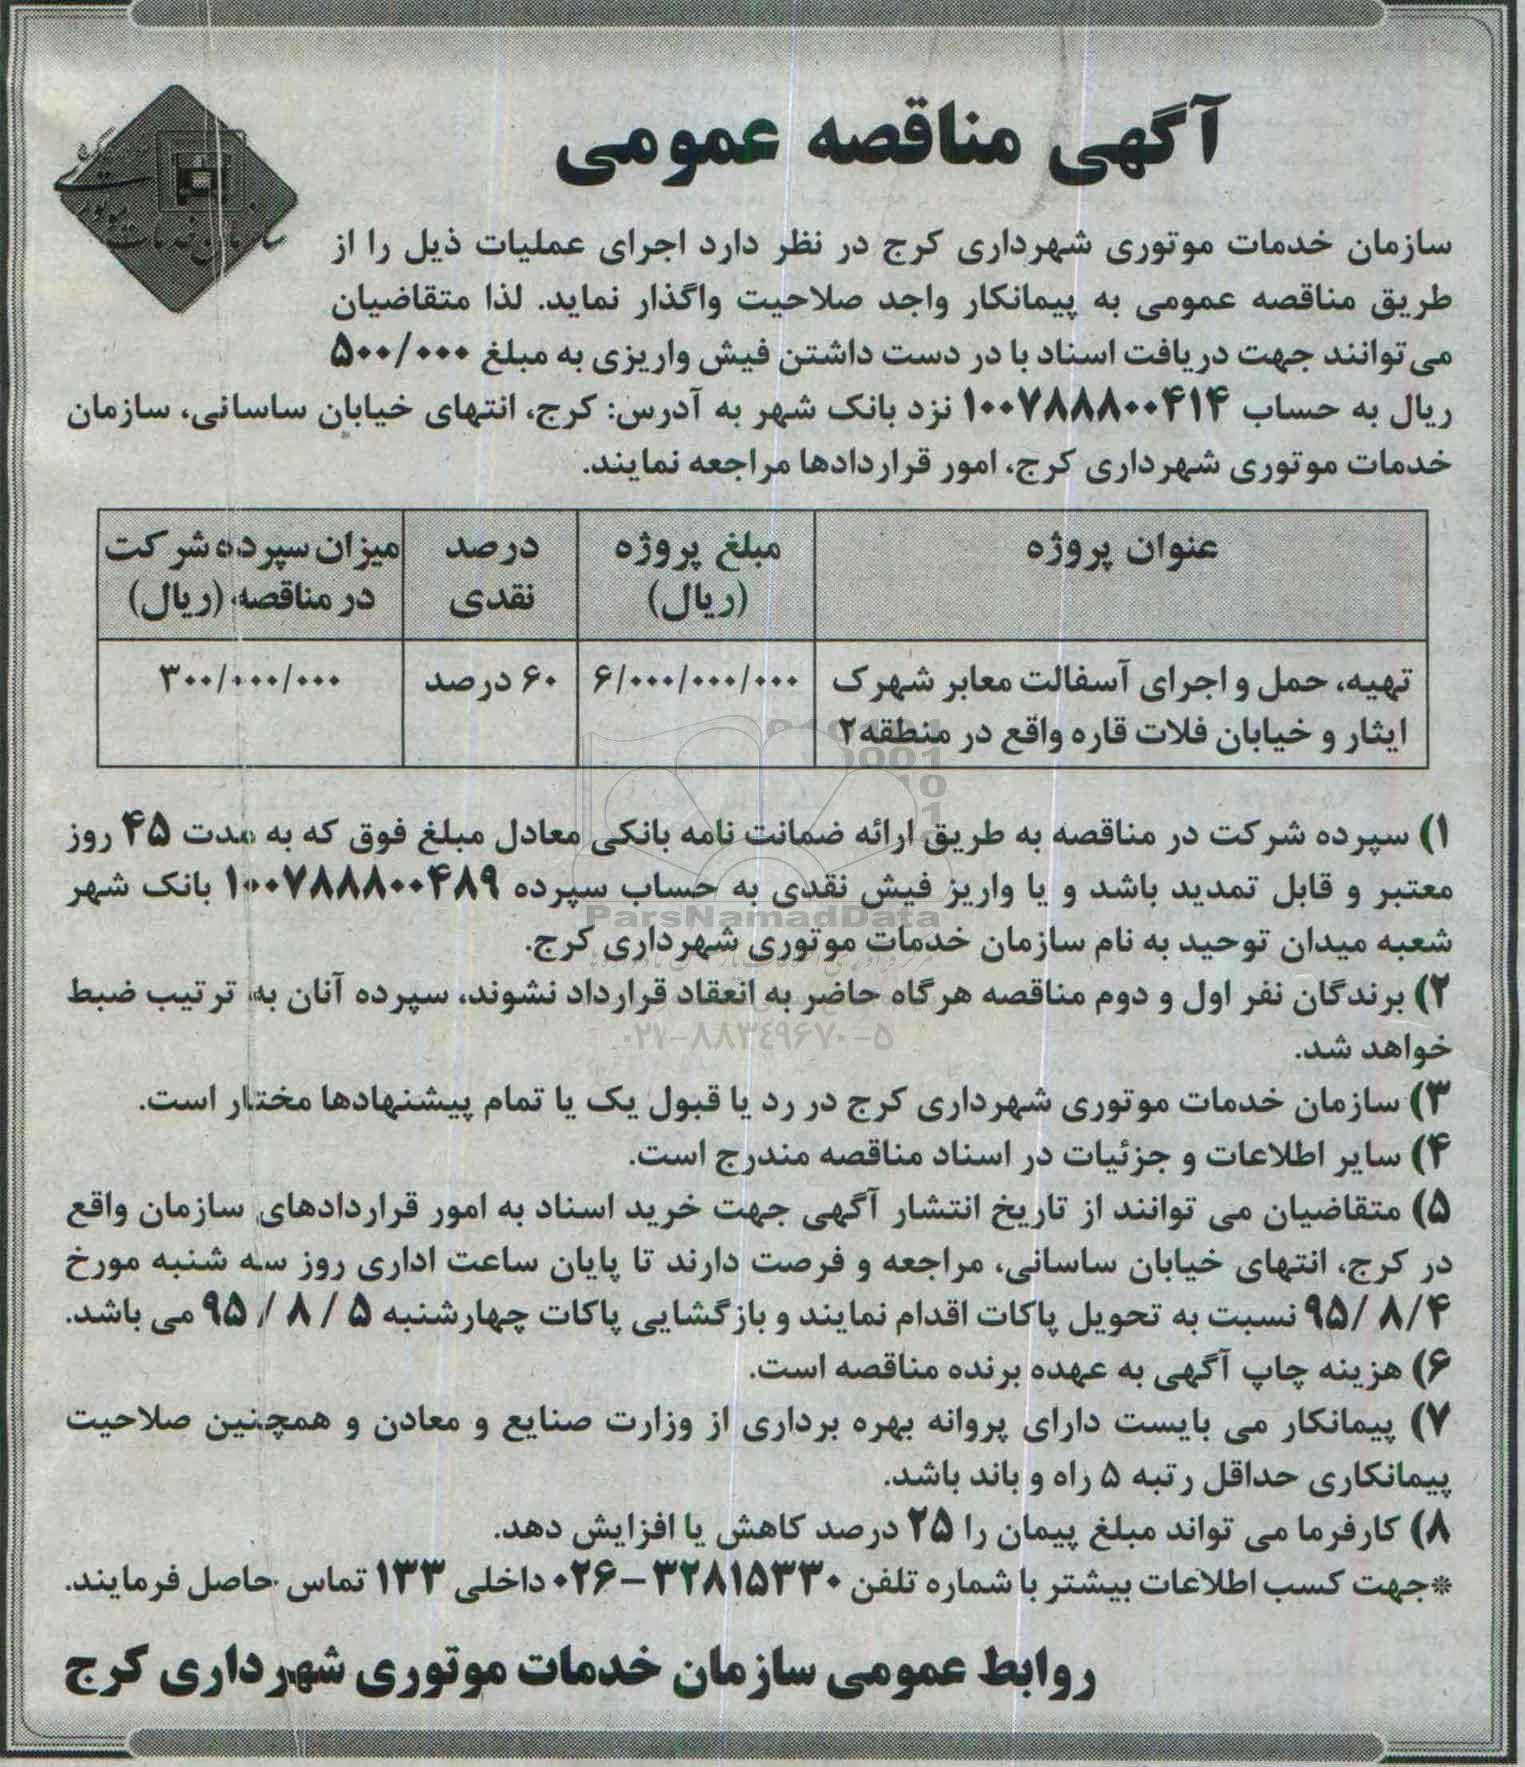 آگهی مناقصه عمومی
سازمان خدمات موتوری شهرداری کرج در نظر دارد اجرای عملیات ذیل را از
طریق مناقصه عمومی به پیمانکار واجد صلاحیت واگذار نماید. لذا متقاضیان
می توانند جهت دریافت اسناد با در دست داشتن فیش واریزی به مبلغ ۵۰۰/۰۰۰
ریال به حساب ۱۰۰۷۸۸۸۰۰۴۱۴ نزد بانک شهر به آدرس: کرج، انتهای خیابان ساسانی، سازمان
خدمات موتوری شهرداری کرج، امور قراردادها مراجعه نمایند.
عنوان پروژه
مبلغ پروژه
(ریال)
درصد
نقدی
میزان سپرده شرکت
در مناقصه (ریال)
تهیه، حمل و اجرای آسفالت معابر شهرک
ایثار و خیابان فلات قاره واقع در منطقه ۲
۶/۰۰۰/۰۰۰/۰۰۰
۶۰ درصد
۳۰۰/۰۰۰/۰۰۰
۱) سپرده شرکت در مناقصه به طریق ارائه ضمانت نامه بانکی معادل مبلغ فوق که به مدت ۴۵ روز
معتبر و قابل تمدید باشد و یا واریز فیش نقدی به حساب سپرده ۱۰۰۷۸۸۸۰۰۴۸۹ بانک شهر
شعبه میدان توحید به نام سازمان خدمات موتوری شهرداری کرج.
۲) برندگان نفر اول و دوم مناقصه هرگاه حاضر به انعقاد قرارداد نشوند، سپرده آنان به ترتیب ضبط
خواهد شد.
۳) سازمان خدمات موتوری شهرداری کرج در رد یا قبول یک یا تمام پیشنهادها مختار است.
۴) سایر اطلاعات و جزئیات در اسناد مناقصه مندرج است.
۵) متقاضیان می توانند از تاریخ انتشار آگهی جهت خرید اسناد به امور قراردادهای سازمان واقع
در کرج، انتهای خیابان ساسانی، مراجعه و فرصت دارند تا پایان ساعت اداری روز سه شنبه مورخ
۹۵/ ۸/۴ نسبت به تحویل پاکات اقدام نمایند و بازگشایی پاکات چهارشنبه ۵ / ۸ / ۹۵ می باشد.
۶) هزینه چاپ آگهی به عهده برنده مناقصه است.
۷) پیمانکار می بایست دارای پروانه بهره برداری از وزارت صنایع و معادن و همچنین صلاحیت
پیمانکاری حداقل رتبه ۵ راه و باند باشد.
۸) کارفرما می تواند مبلغ پیمان را ۲۵ درصد کاهش یا افزایش دهد.
*جهت کسب اطلاعات بیشتر با شماره تلفن ۳۲۸۱۵۳۳۰-۰۲۶ داخلی ۱۳۳ تماس حاصل فرمایند.
روابط عمومی سازمان خدمات موتوری شهرداری کرج
ParsNamadData
۰۲۱-۸۸۳۴۹۶۷۰-۵